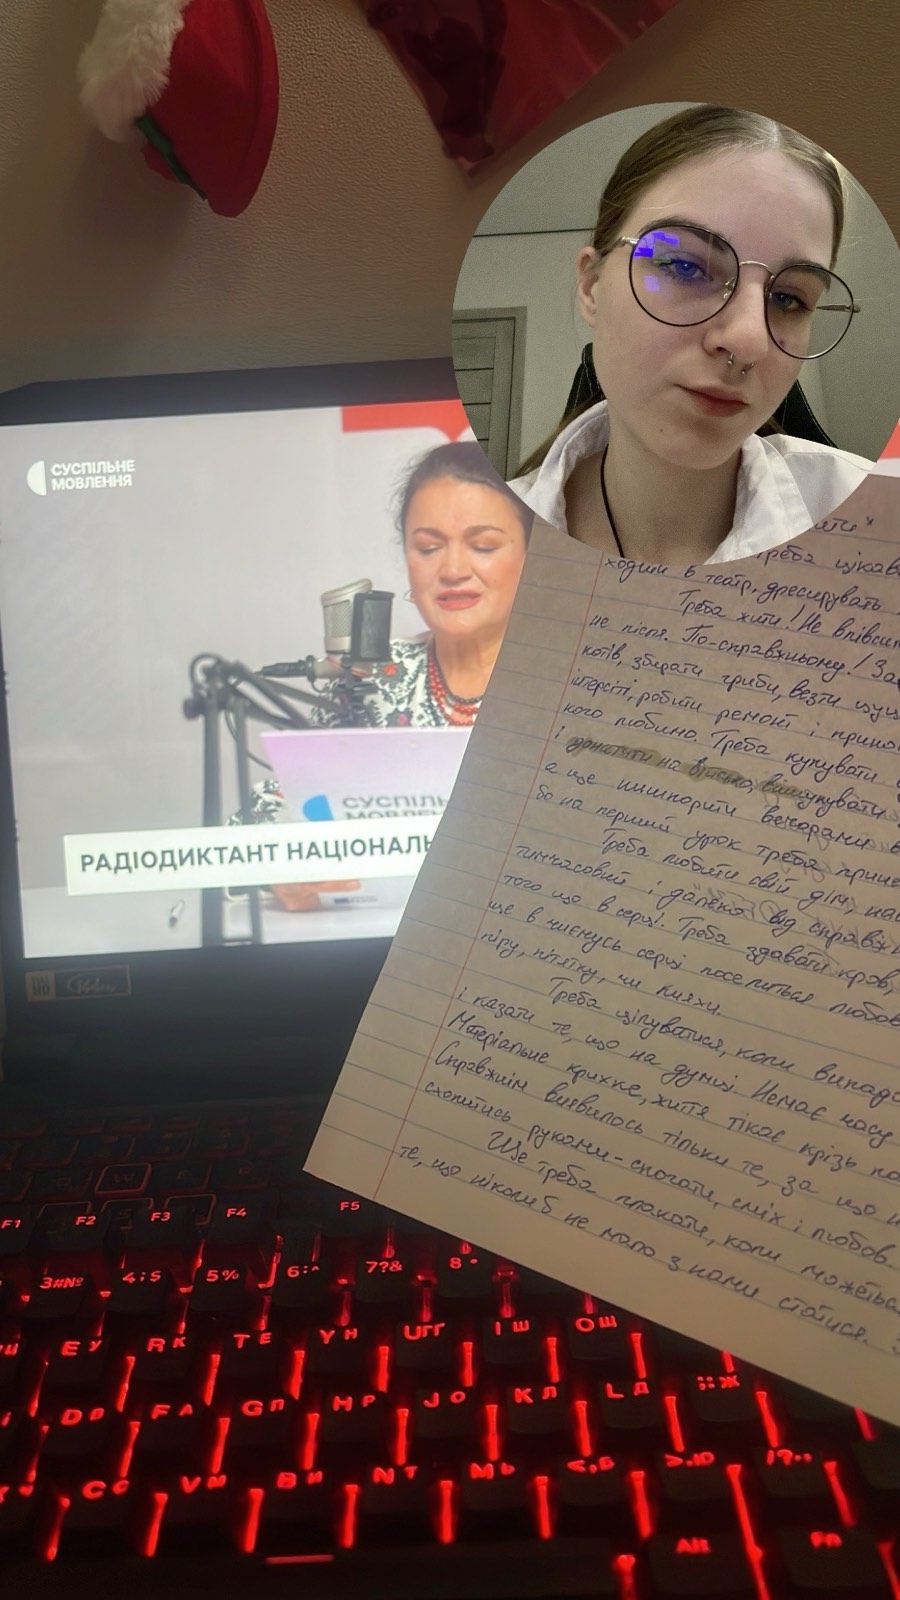 СУСПІЛЬНЕ
МОВЛЕННЯ
СУСПІЛЬ
МОВЛЕНН
РАДІОДИКТАНТ НАЦІОНАЛЬ
ити"
Треба цікав
ходити в театр, дресирувать
Треба жити! Не впівсил
не після. По-справжньому! За
котів, збирати гриби, везти цуц
інтерсіті, робити ремонт і прино
кого любимо. Треба купувати
і донатити на військо, вишукувати
а ще шишкорити вечорами в
бо на перший урок треба прине
Треба любити свій дім, на
тимчасовий і далеко від справжн
того що в серці. Треба здавати кров,
ще в чиємусь серці поселиться любов
піру, пітятку, чи княжи.
Треба цілуватися, коли випад
і казати те, що на думці. Немає часу
Матеріальне крихке, життя тікає крізь па
Справжнім виявилось тільки те, за що н
схопитись руками - спогади, сміх і любов.
Ще треба плакати, коли можеться
те, що ніколи б не мало з нами статися. З
F1 F2 F3 F4 F5
3#№ 4;$ 5% 6:^ 7?& 8*
EУ RК TЕ YН UГ IШ OЩ
DВ FА GП HР JО KЛ LД :;Ж
CС VМ BИ NТ MЬ <,Б >.Ю /?.,
Alt Fn